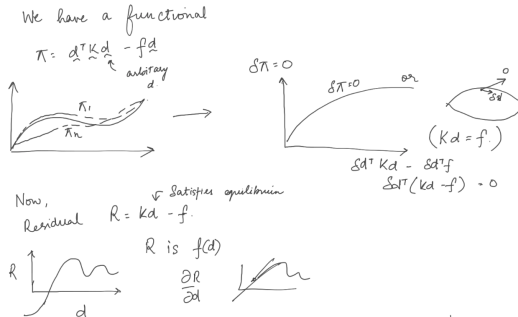 We have a functional
π = dᵀ K d - f d
arbitrary
d
π₁
πn
δπ = 0
δπ=0
or
0
δd
(Kd = f.)
δdᵀ Kd - δdᵀf
δdᵀ (Kd - f) = 0
Now,
Satisfies equilibrium
Residual R = Kd - f.
R is f(d)
R
d
∂R
∂d